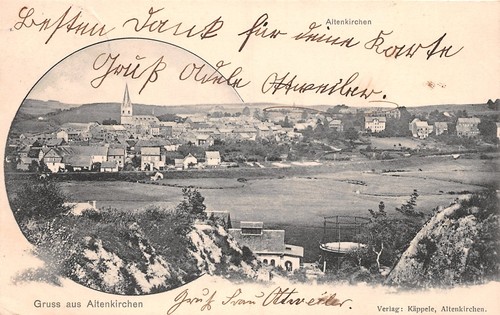 Altenkirchen
Besten Dank für deine Karte
Gruß Adele Ottweiler.
Gruss aus Altenkirchen
Gruß Frau Ottweiler.
Verlag: Käppele, Altenkirchen.